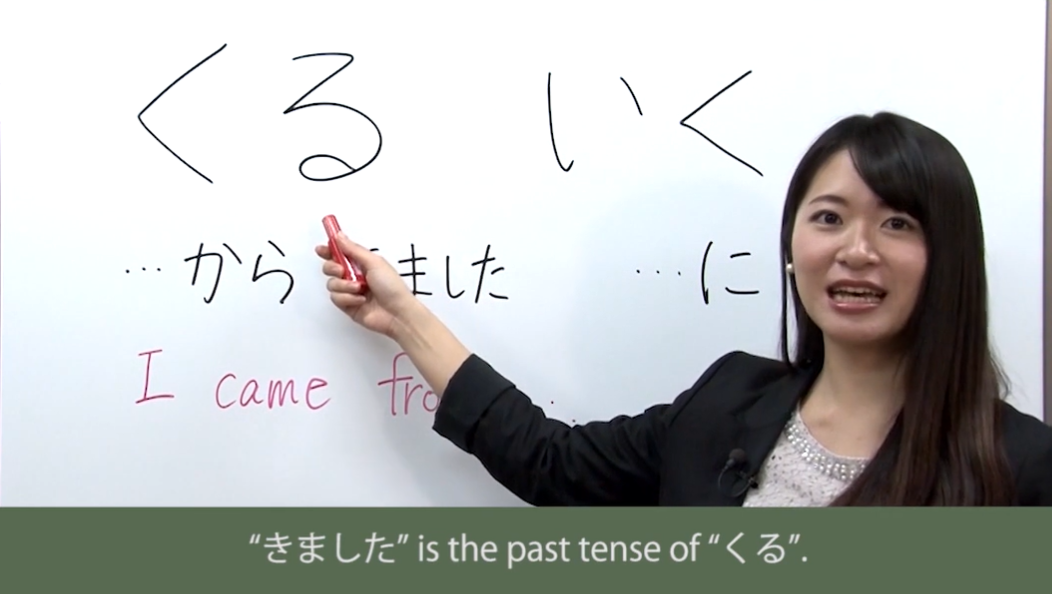 くる いく
…から ました …に
I came
"きました" is the past tense of "くる".